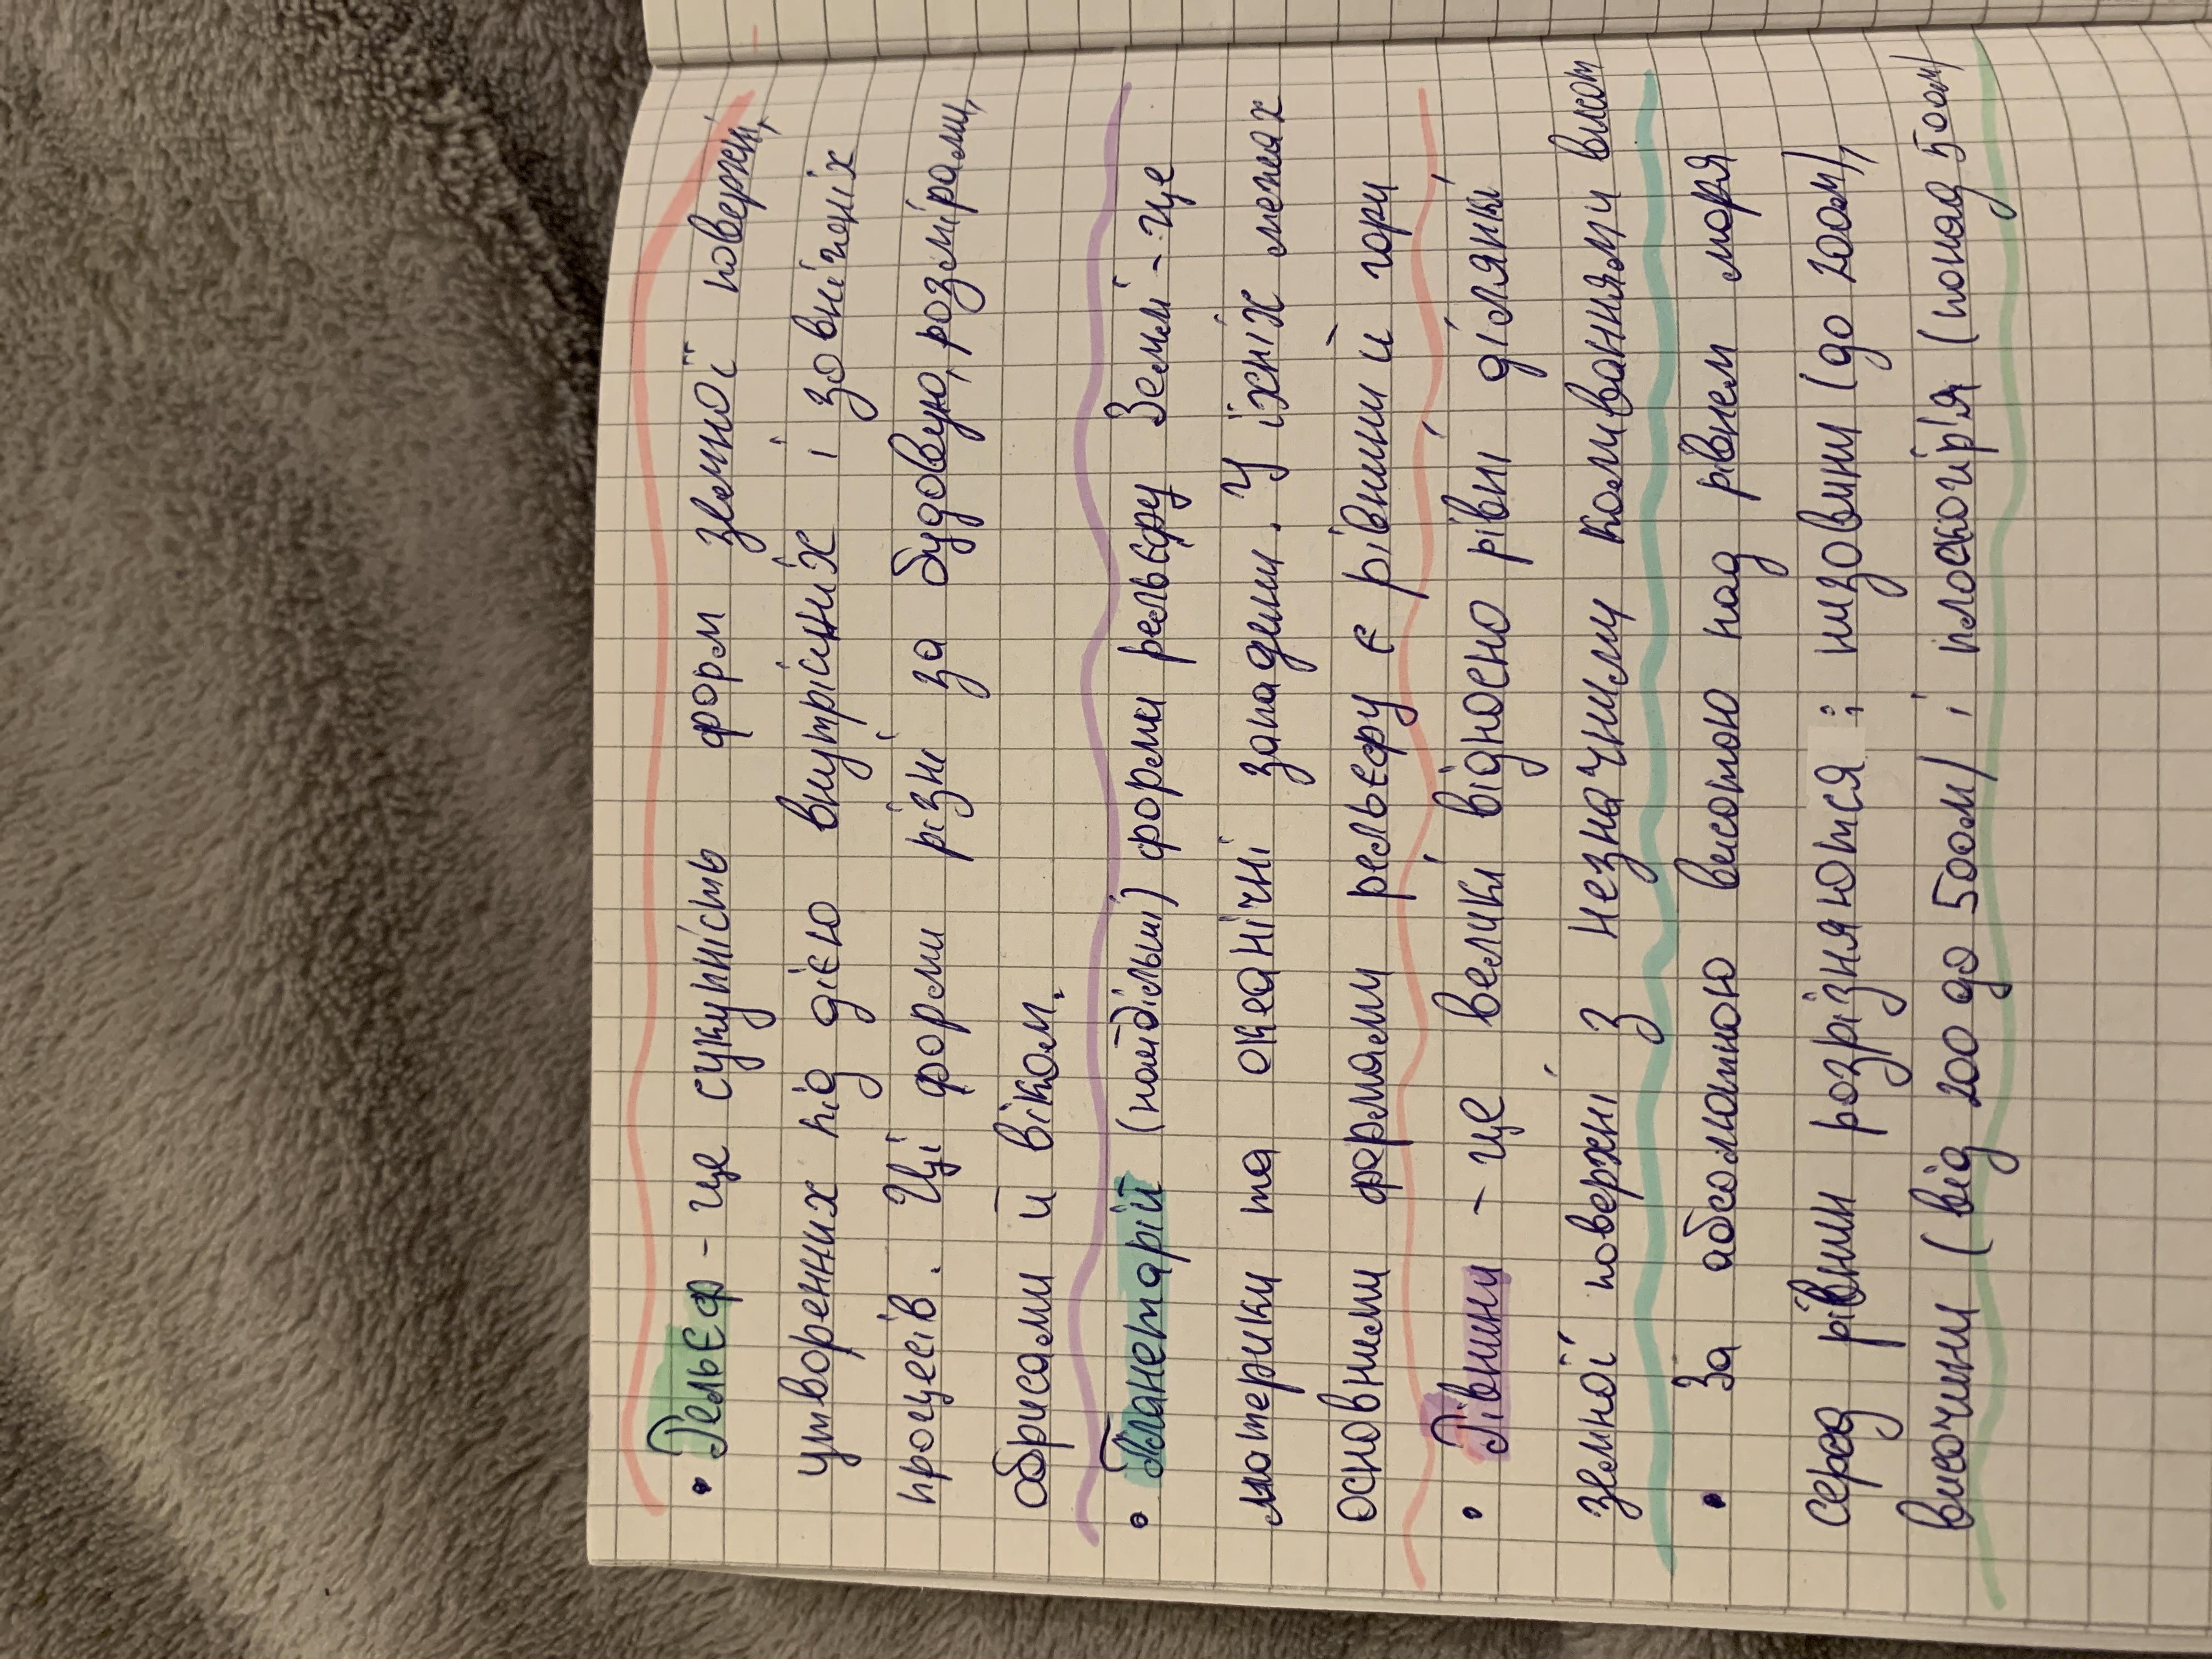 • Рельєф - це сукупність форм земної поверхні,
утворенних під дією внутрішніх і зовнішніх
процесів. Ці форми різні за будовую, розмірами,
обрисами й віком.
• Планетарій (найдільші) форми рельєфу Землі - це
материки та океанічні западини. У їхніх межах
основними формами рельєфу є рівнини й гори
• Рівнини - це великі відносно рівні ділянкі
земної поверхні з незначними коливаннями висот
• За абсолютною висотою над рівнем моря
серед рівнин розрізняються : низовини (до 200м),
височини (від 200 до 500м) і плоскогір'я (понад 500м)